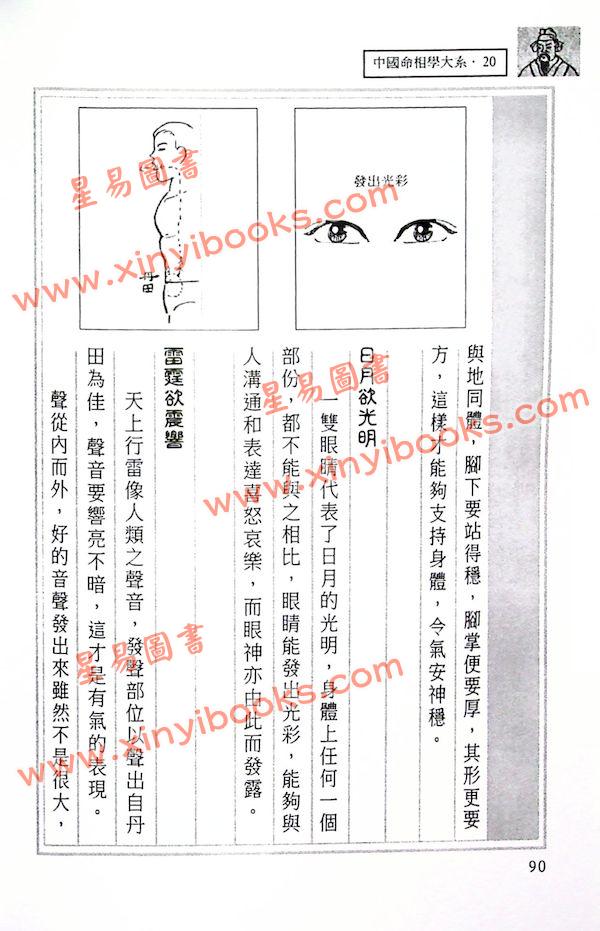 中國命相學大系·20
發出光彩
丹田
與地同體，腳下要站得穩，腳掌便要厚，其形更要
方，這樣才能夠支持身體，令氣安神穩。
日月欲光明
一雙眼睛代表了日月的光明，身體上任何一個
部份，都不能與之相比，眼睛能發出光彩，能夠與
人溝通和表達喜怒哀樂，而眼神亦由此而發露。
雷霆欲震響
天上行雷像人類之聲音，發聲部位以聲出自丹
田為佳，聲音要響亮不暗，這才是有氣的表現。
聲從內而外，好的音聲發出來雖然不是很大，
90
星易圖書
www.xinyibooks.com
星易圖書
www.xinyibooks.com
星易圖書
www.xinyibooks.com
星易圖書
www.xinyibooks.com